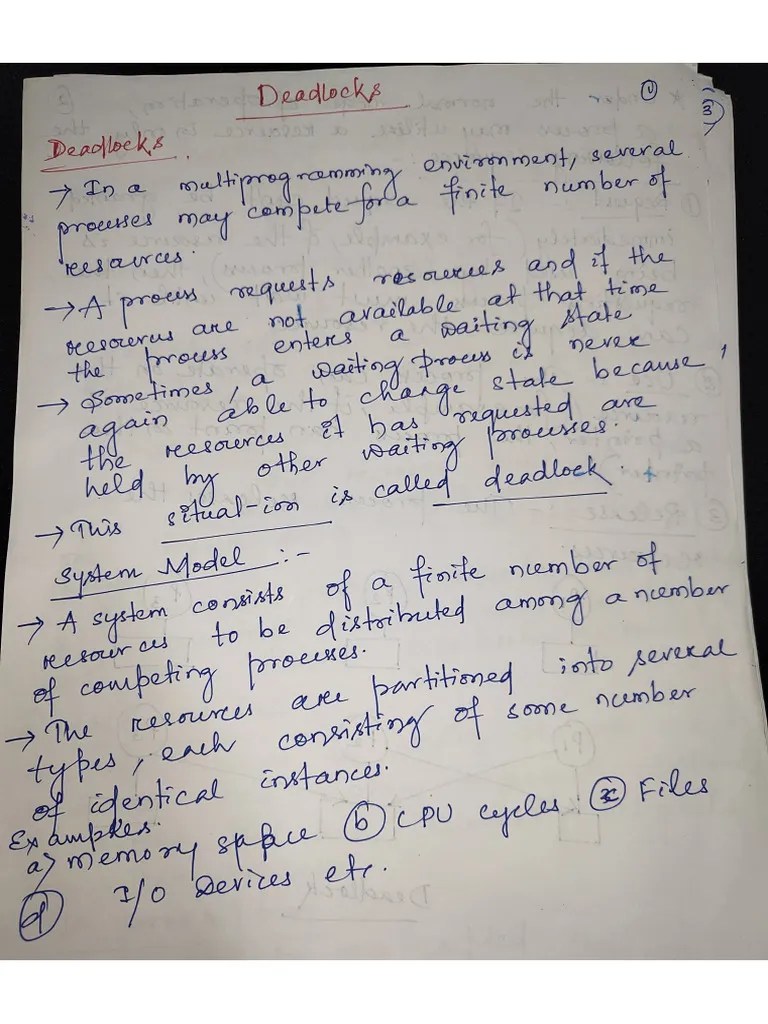 Deadlocks
①
3
Deadlocks.
→ In a multiprogramming environment, several
processes may compete for a finite number of
resources.
→ A process requests resources and if the
resources are not available at that time
the process enters a waiting state
→ Sometimes, a waiting process is never
again able to change state because,
the resources it has requested are
held by other waiting processes.
→ This situat-ion is called deadlock.
System Model :-
→ A system consists of a finite number of
resources to be distributed among a number
of competing processes.
→ The resources are partitioned into several
types, each consisting of some number
of identical instances.
Examples.
a) memory space ⓑ CPU cycles ⓒ Files
ⓓ I/O Devices etc.